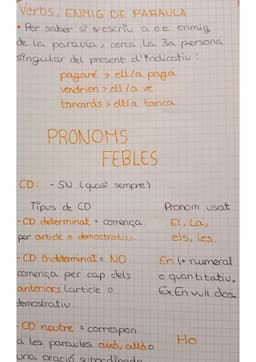 Verbs, ENMIG DE PARAULA
• Per saber si s'escriu a o e enmig
de la paraula, cerca la 3a persona
singular del present d'indicatiu:
pagaré > ell/a paga
vendrien > ell/a ve
tancaràs > ell/a tanca
PRONOMS
FEBLES
CD: - SN (quasi sempre)
Tipus de CD Pronom usat
- CD determinat = comença El, La,
per article o demostratiu. els, les.
- CD indeterminat = NO En (+ numeral
comença per cap dels o quantitatiu.
anteriors (article o Ex: En vull dos.
demostratiu.
- CD neutre = correspon Ho
a les paraules això, allò o
una oració subordinada